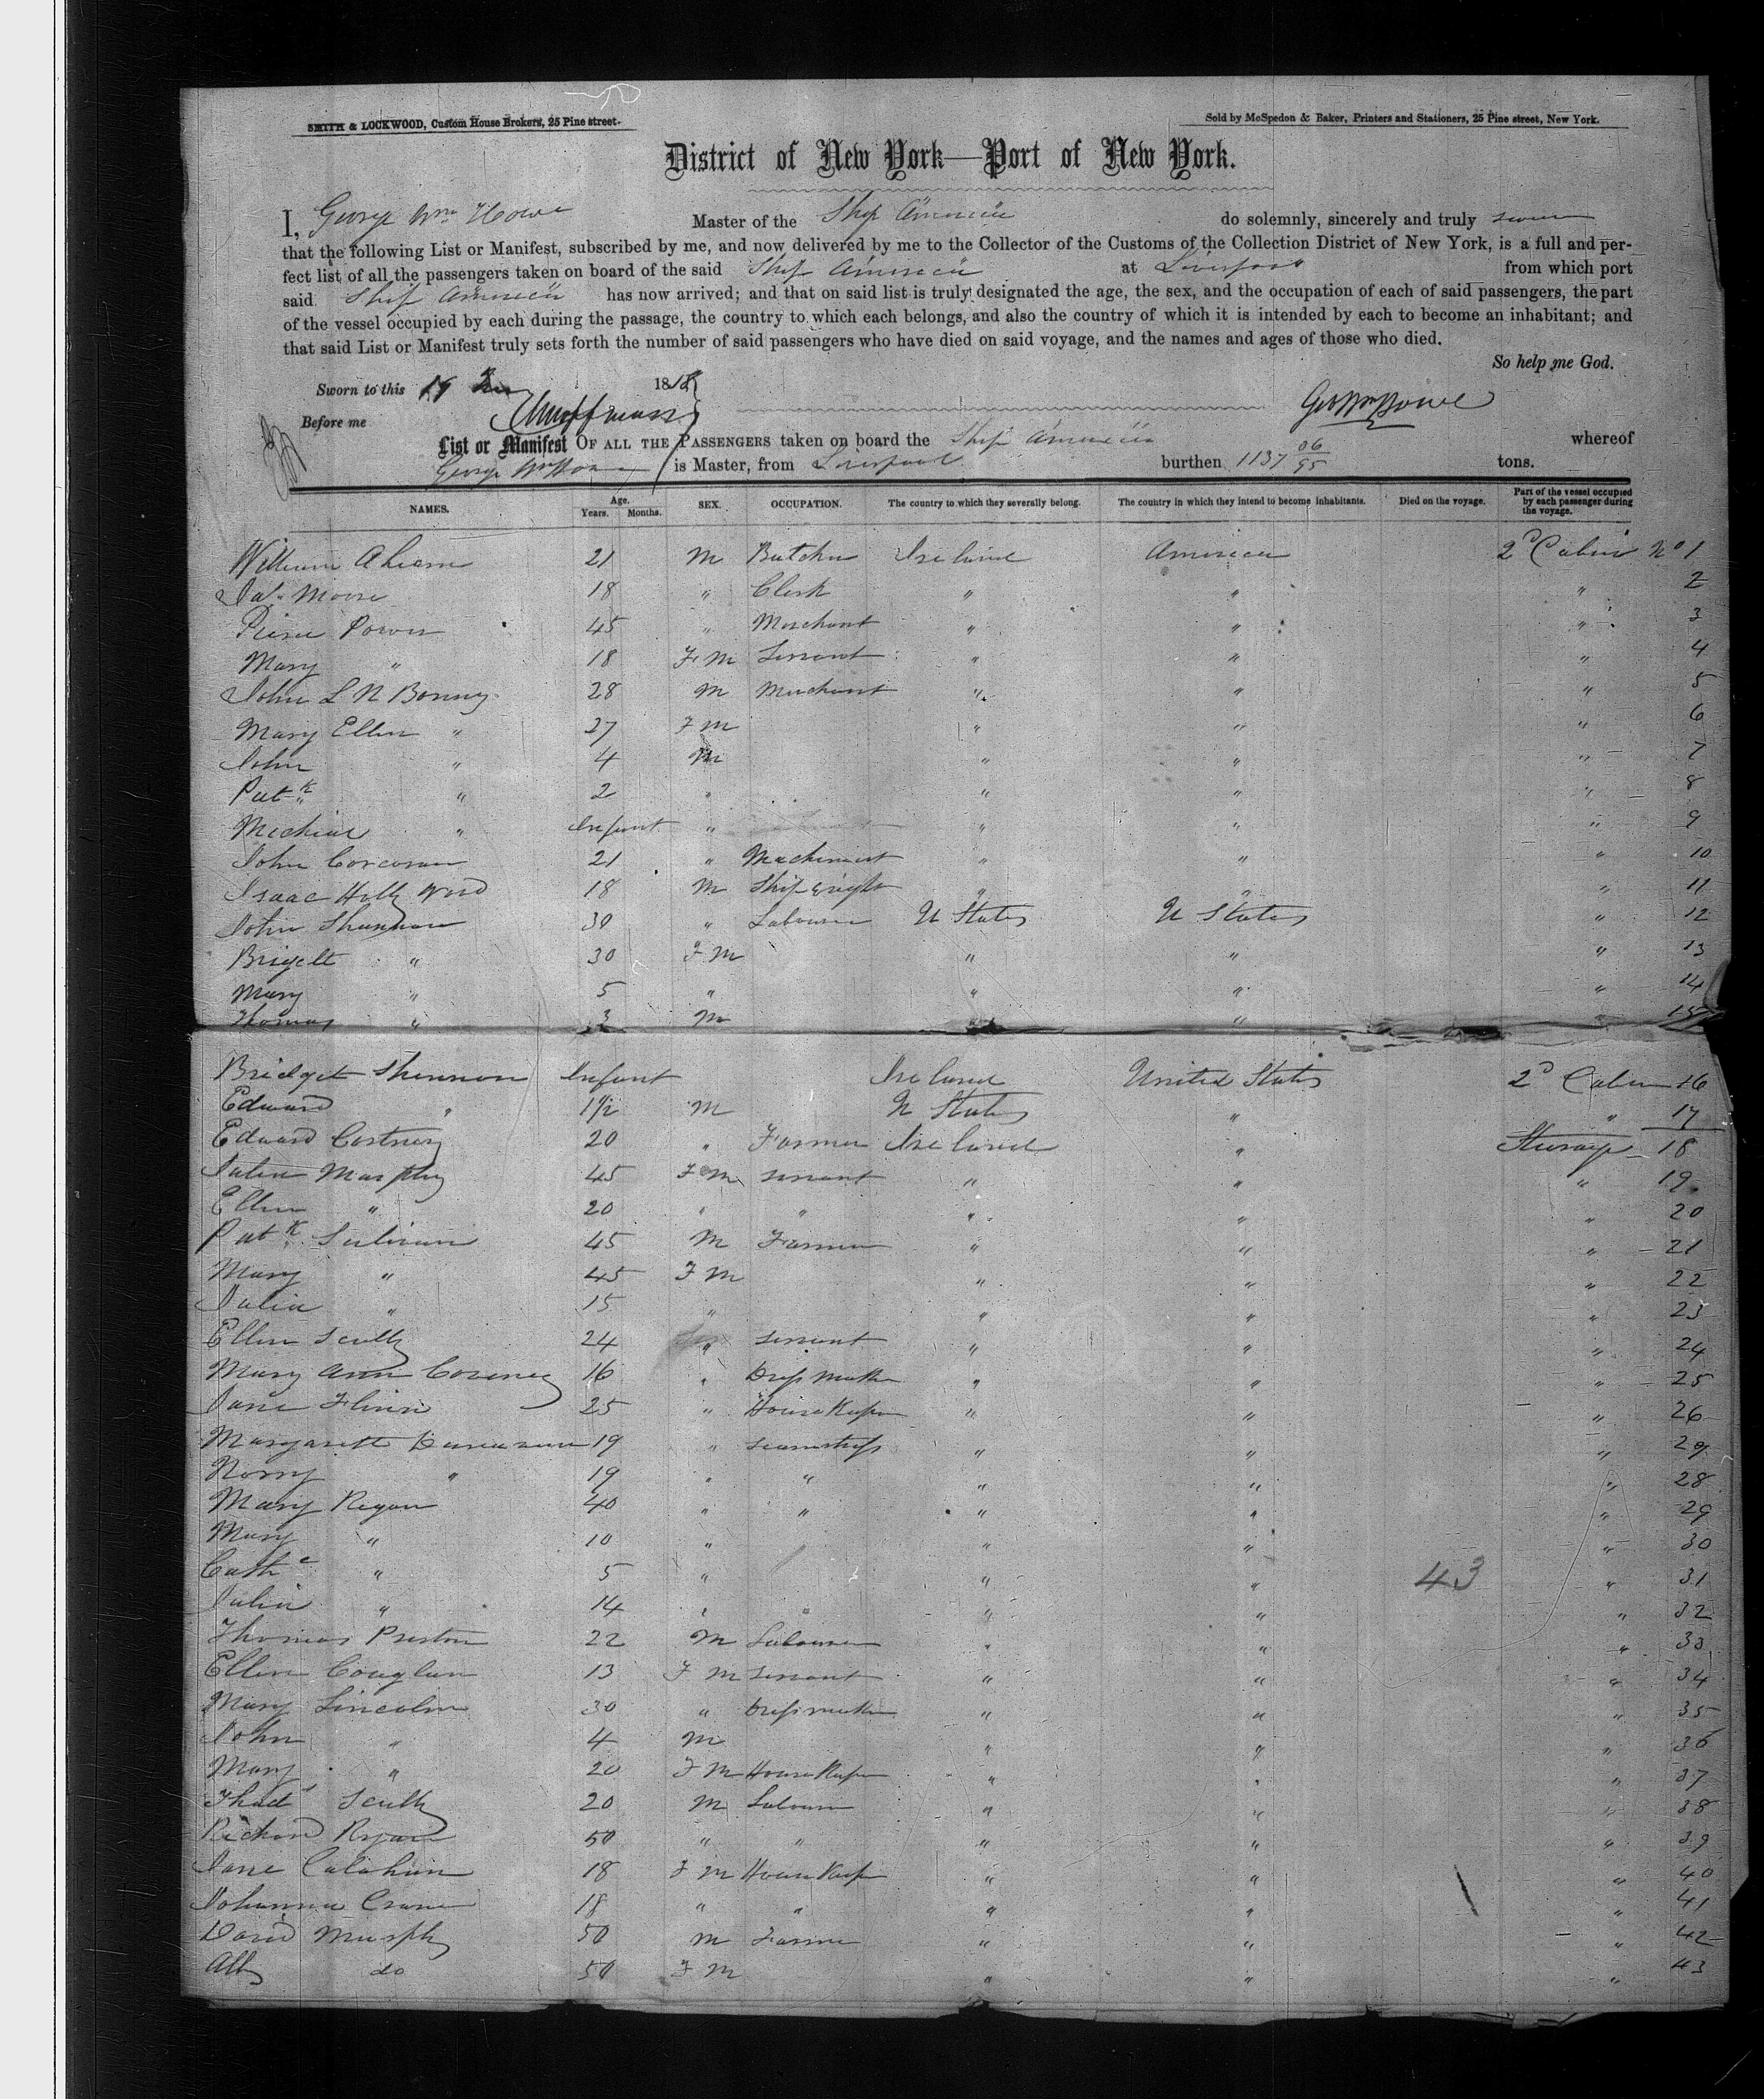 SMITH & LOCKWOOD, Custom House Brokers, 25 Pine street.
Sold by McSpedon & Baker, Printers and Stationers, 25 Pine street, New York.
District of New York—Port of New York.
I, George Wm Howe Master of the Ship America do solemnly, sincerely and truly swear
that the following List or Manifest, subscribed by me, and now delivered by me to the Collector of the Customs of the Collection District of New York, is a full and per-
fect list of all the passengers taken on board of the said Ship America at Liverpool from which port
said Ship America has now arrived; and that on said list is truly designated the age, the sex, and the occupation of each of said passengers, the part
of the vessel occupied by each during the passage, the country to which each belongs, and also the country of which it is intended by each to become an inhabitant; and
that said List or Manifest truly sets forth the number of said passengers who have died on said voyage, and the names and ages of those who died.
So help me God.
Sworn to this 19 18
Before me Geo Wm Howe
List or Manifest OF ALL THE PASSENGERS taken on board the Ship America whereof
George Wm Howe is Master, from Liverpool burthen 1137 06/95 tons.
NAMES. Age. Years. Months. SEX. OCCUPATION. The country to which they severally belong. The country in which they intend to become inhabitants. Died on the voyage. Part of the vessel occupied by each passenger during the voyage.
William Ahearn 21 M Butcher Ireland America 2d Cabin No 1
Jas Moore 18 " Clerk " " " 2
Pierce Power 45 " Merchant " " " 3
Mary " 18 F M Servant " " " 4
John L N 28 M Merchant " " " 5
Mary Ellen " 27 F M " " " 6
John " 4 M " " " 7
Patk " 2 " " " " 8
" Infant " " " " 9
John Corcoran 21 " Machinist " " " 10
Isaac Holly Wood 18 M Ship wright " " " 11
John Shannon 30 " Labourer U States U States " 12
Brigett " 30 F M " " " 13
Mary " 5 " " " " 14
Thomas " 3 M " " " 15
Bridget Shannon Infant Ireland United States 2d Cabin 16
Edward " 1 1/2 M U States " " 17
Edward 20 " Farmer Ireland " Steerage 18
Julia Murphy 45 F M servant " " " 19
Ellen " 20 " " " " " 20
Patk Sulivan 45 M Farmer " " " 21
Mary " 45 F M " " " 22
Julia " 15 " " " " 23
Ellen Scully 24 " servant " " " 24
Mary Ann 16 " Dress Maker " " " 25
Jane Flinn 25 " House Keeper " " " 26
Margarett 19 " seamstress " " " 27
Norry " 19 " " " " " 28
Mary Regan 40 " " " " " 29
Mary " 10 " " " " 30
Cathe " 5 " " " 43 " 31
Julia " 14 " " " " " 32
Thomas Preston 22 M Labourer " " " 33
Ellen Couglan 13 F M servant " " " 34
Mary Lincoln 30 " Dressmaker " " " 35
John " 4 M " " " 36
Mary " 20 F M House Keeper " " " 37
Thads Scully 20 M Labourer " " " 38
Richard Ryan 50 " " " " " 39
Jane Calahan 18 F M House Keeper " " " 40
Johanna Crane 18 " " " " " 41
David Murphy 50 M Farmer " " " 42
do 50 F M " " " 43